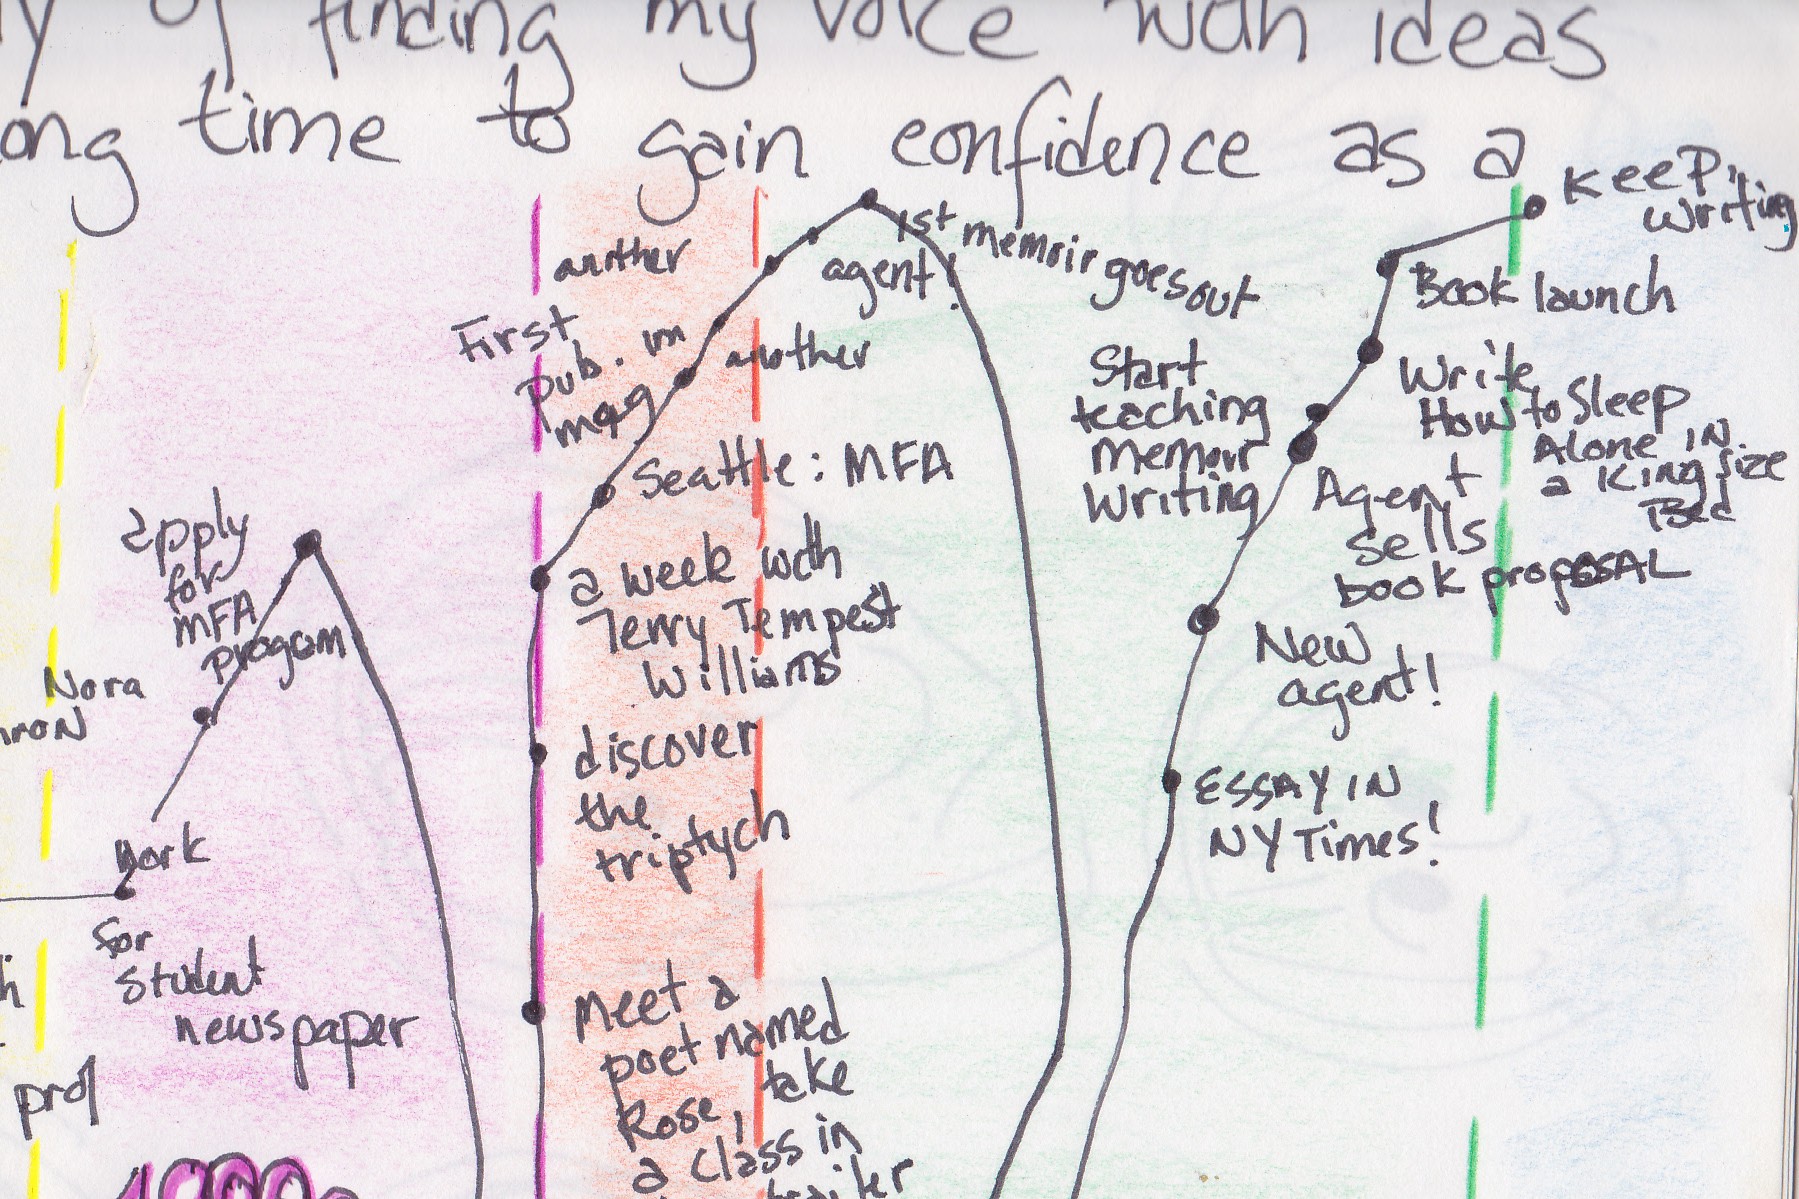 of finding my voice with ideas
time to gain confidence as a
Keep
writing
1st memoir goes out
another
agent!
Book launch
First
pub. in
mag
another
Start
teaching
memoir
writing
Write
How to Sleep
Alone in
a King Size
Bed
Seattle: MFA
Agent
sells
book proposAL
apply
for
MFA
progam
a week with
Terry Tempest
Williams
New
agent!
Nora
discover
the
triptych
ESSAY IN
NY Times!
work
for
student
newspaper
meet a
poet named
Rose, take
a class in
prof
1990s